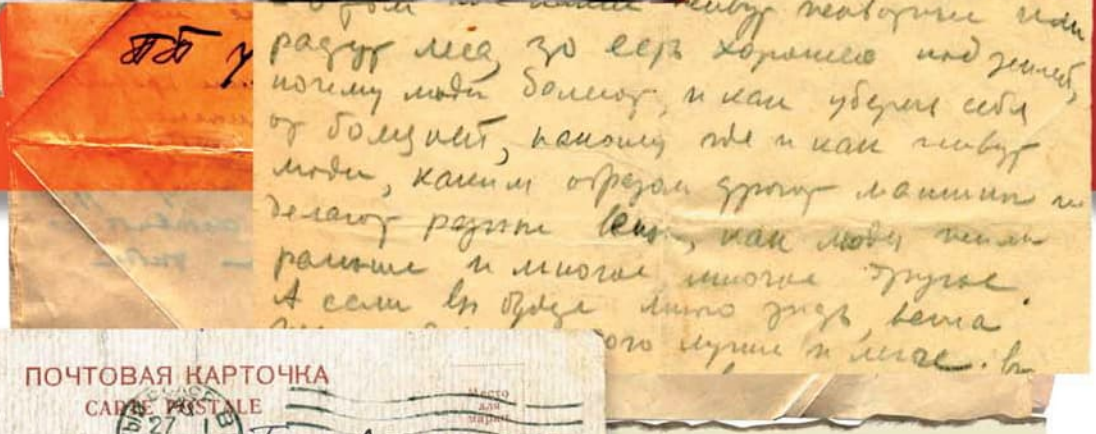 живут
растут леса, что есть хорошего под землей,
почему люди болеют, и как уберечь себя
от болезней, наконец где и как живут
люди, каким образом строят машины и
делают разные вещи, как люди жили
раньше и многое многое другое.
А если вы будете много знать,
ого лучше и легче. вы
ПОЧТОВАЯ КАРТОЧКА
CARTE POSTALE
Место
для
марки
27